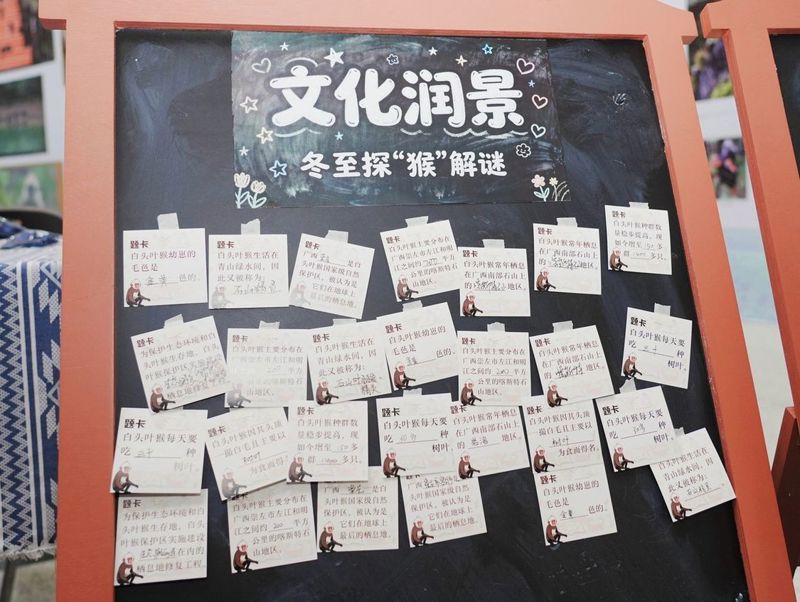 文化润景
冬至探“猴”解谜
题卡
白头叶猴幼崽的
毛色是
金黄 色的。
题卡
白头叶猴生活在
青山绿水间，因
此又被称为：
题卡
广西 崇左 是白
头叶猴国家级自然
保护区，被认为是
它们在地球上
最后的栖息地。
题卡
白头叶猴主要分布在
广西崇左市左江和明
江之间约 200 平方
公里的喀斯特石
山地区。
题卡
白头叶猴常年栖息
在广西南部石山上
的 地区。
题卡
白头叶猴常年栖息
在广西南部石山上
的 地区。
题卡
白头叶猴种群数
量稳步提高，现
如今增至 130 多
群 1400 多只。
题卡
为保护生态环境和白
头叶猴生存地，白头
叶猴保护区实施建设
在内的
栖息地修复工程。
题卡
白头叶猴主要分布在
广西崇左市左江和明
江之间约 200 平方
公里的喀斯特石
山地区。
题卡
白头叶猴生活在
青山绿水间，因
此又被称为：
石山精灵
题卡
白头叶猴幼崽的
毛色是
金黄 色的。
题卡
白头叶猴主要分布在
广西崇左市左江和明
江之间约 200 平方
公里的喀斯特石
山地区。
题卡
白头叶猴常年栖息
在广西南部石山上
的 地区。
题卡
白头叶猴每天要
吃 三十 种
树叶。
题卡
白头叶猴每天要
吃 三十 种
树叶。
题卡
白头叶猴因其头顶
一撮白毛且主要以
树叶
为食而得名。
题卡
白头叶猴种群数
量稳步提高，现
如今增至 130 多
群 1400 多只。
题卡
白头叶猴每天要
吃 种
树叶。
题卡
白头叶猴常年栖息
在广西南部石山上
的 地区。
题卡
白头叶猴因其头顶
一撮白毛且主要以
树叶
为食而得名。
题卡
白头叶猴每天要
吃 30多 种
树叶。
题卡
白头叶猴生活在
青山绿水间，因
此又被称为：
石山精灵
题卡
为保护生态环境和白
头叶猴生存地，白头
叶猴保护区实施建设
生态廊道 在内的
栖息地修复工程。
白头叶猴主要分布在
广西崇左市左江和明
江之间约 200 平方
公里的喀斯特石
山地区。
广西 崇左 是白
头叶猴国家级自然
保护区，被认为是
它们在地球上
最后的栖息地。
头叶猴国家级自然
保护区，被认为是
它们在地球上
最后的栖息地。
题卡
白头叶猴幼崽的
毛色是
金黄 色的。